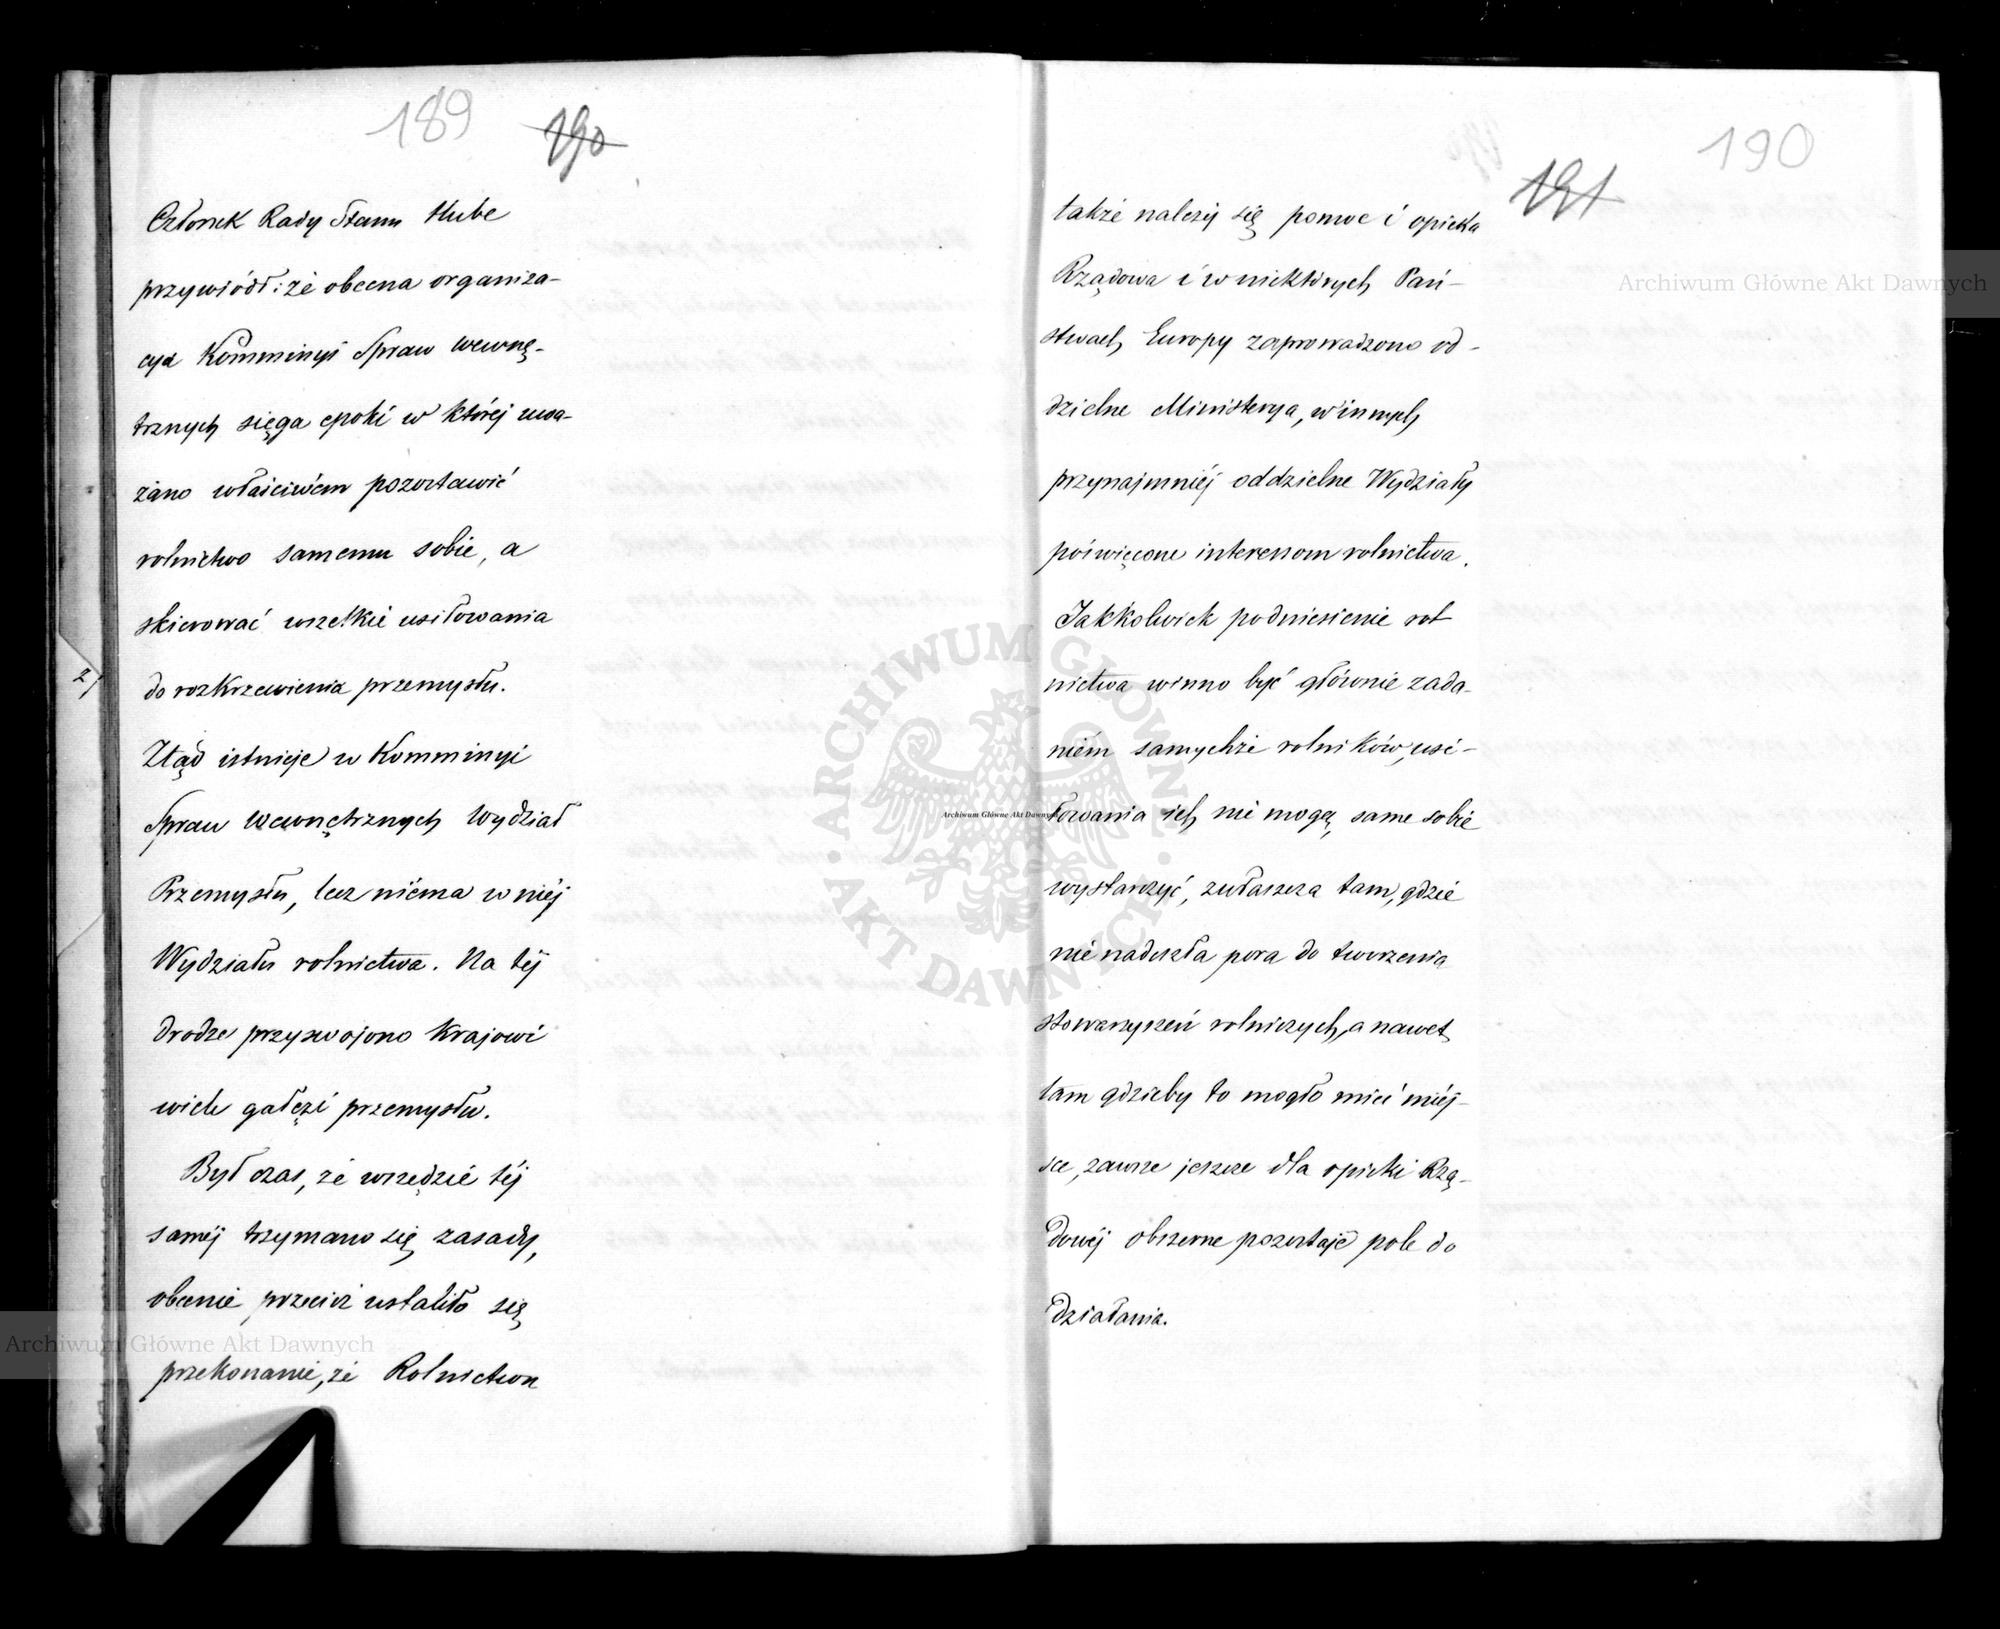 189 190
Członek Rady Stanu Hube
przywiódł: że obecna organiza-
cya Kommissyi Spraw wewnę-
trznych sięga epoki w której uwa-
żano właściwém pozostawić
rolnictwo samemu sobie, a
skierować wszelkie usiłowania
do rozkrzewienia przemysłu.
Ztąd istnieje w Kommissyi
Spraw wewnętrznych Wydział
Przemysłu, lecz niéma w niéj
Wydziału rolnictwa. Na téj
drodze przyswojono krajowi
wiele gałęzi przemysłu.
Był czas, że wszędzie téj
saméj trzymano się zasady,
obecnie przecież ustaliło się
przekonanie, że Rolnictwu
2)
190
191
także należy się pomoc i opieka
Rządowa i w niektórych Pań-
stwach Europy zaprowadzono od-
dzielne Ministerya, w innych
przynajmniéj oddzielne Wydziały
poświęcone interessom rolnictwa.
Jakkolwiek podniesienie rol
nictwa winno być głównie zada-
niém samychże rolników, usi-
łowania ich nie mogą same sobie
wystarczyć, zwłaszcza tam, gdzie
nie nadeszła pora do tworzenia
stowarzyszeń rolniczych, a nawet
tam gdzieby to mogło mieć miéj-
sce, zawsze jeszcze dla opieki Rzą-
dowéj obszerne pozostaje pole do
działania.
Archiwum Główne Akt Dawnych
ARCHIWUM GŁÓWNE · AKT DAWNYCH ·
Archiwum Główne Akt Dawnych
Archiwum Główne Akt Dawnych